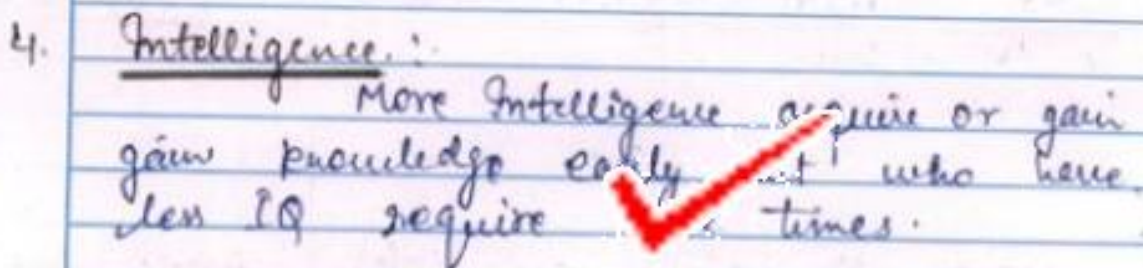 4. Intelligence :
More Intelligence acquire or gain
gain knowledge easily who have
less IQ require times.